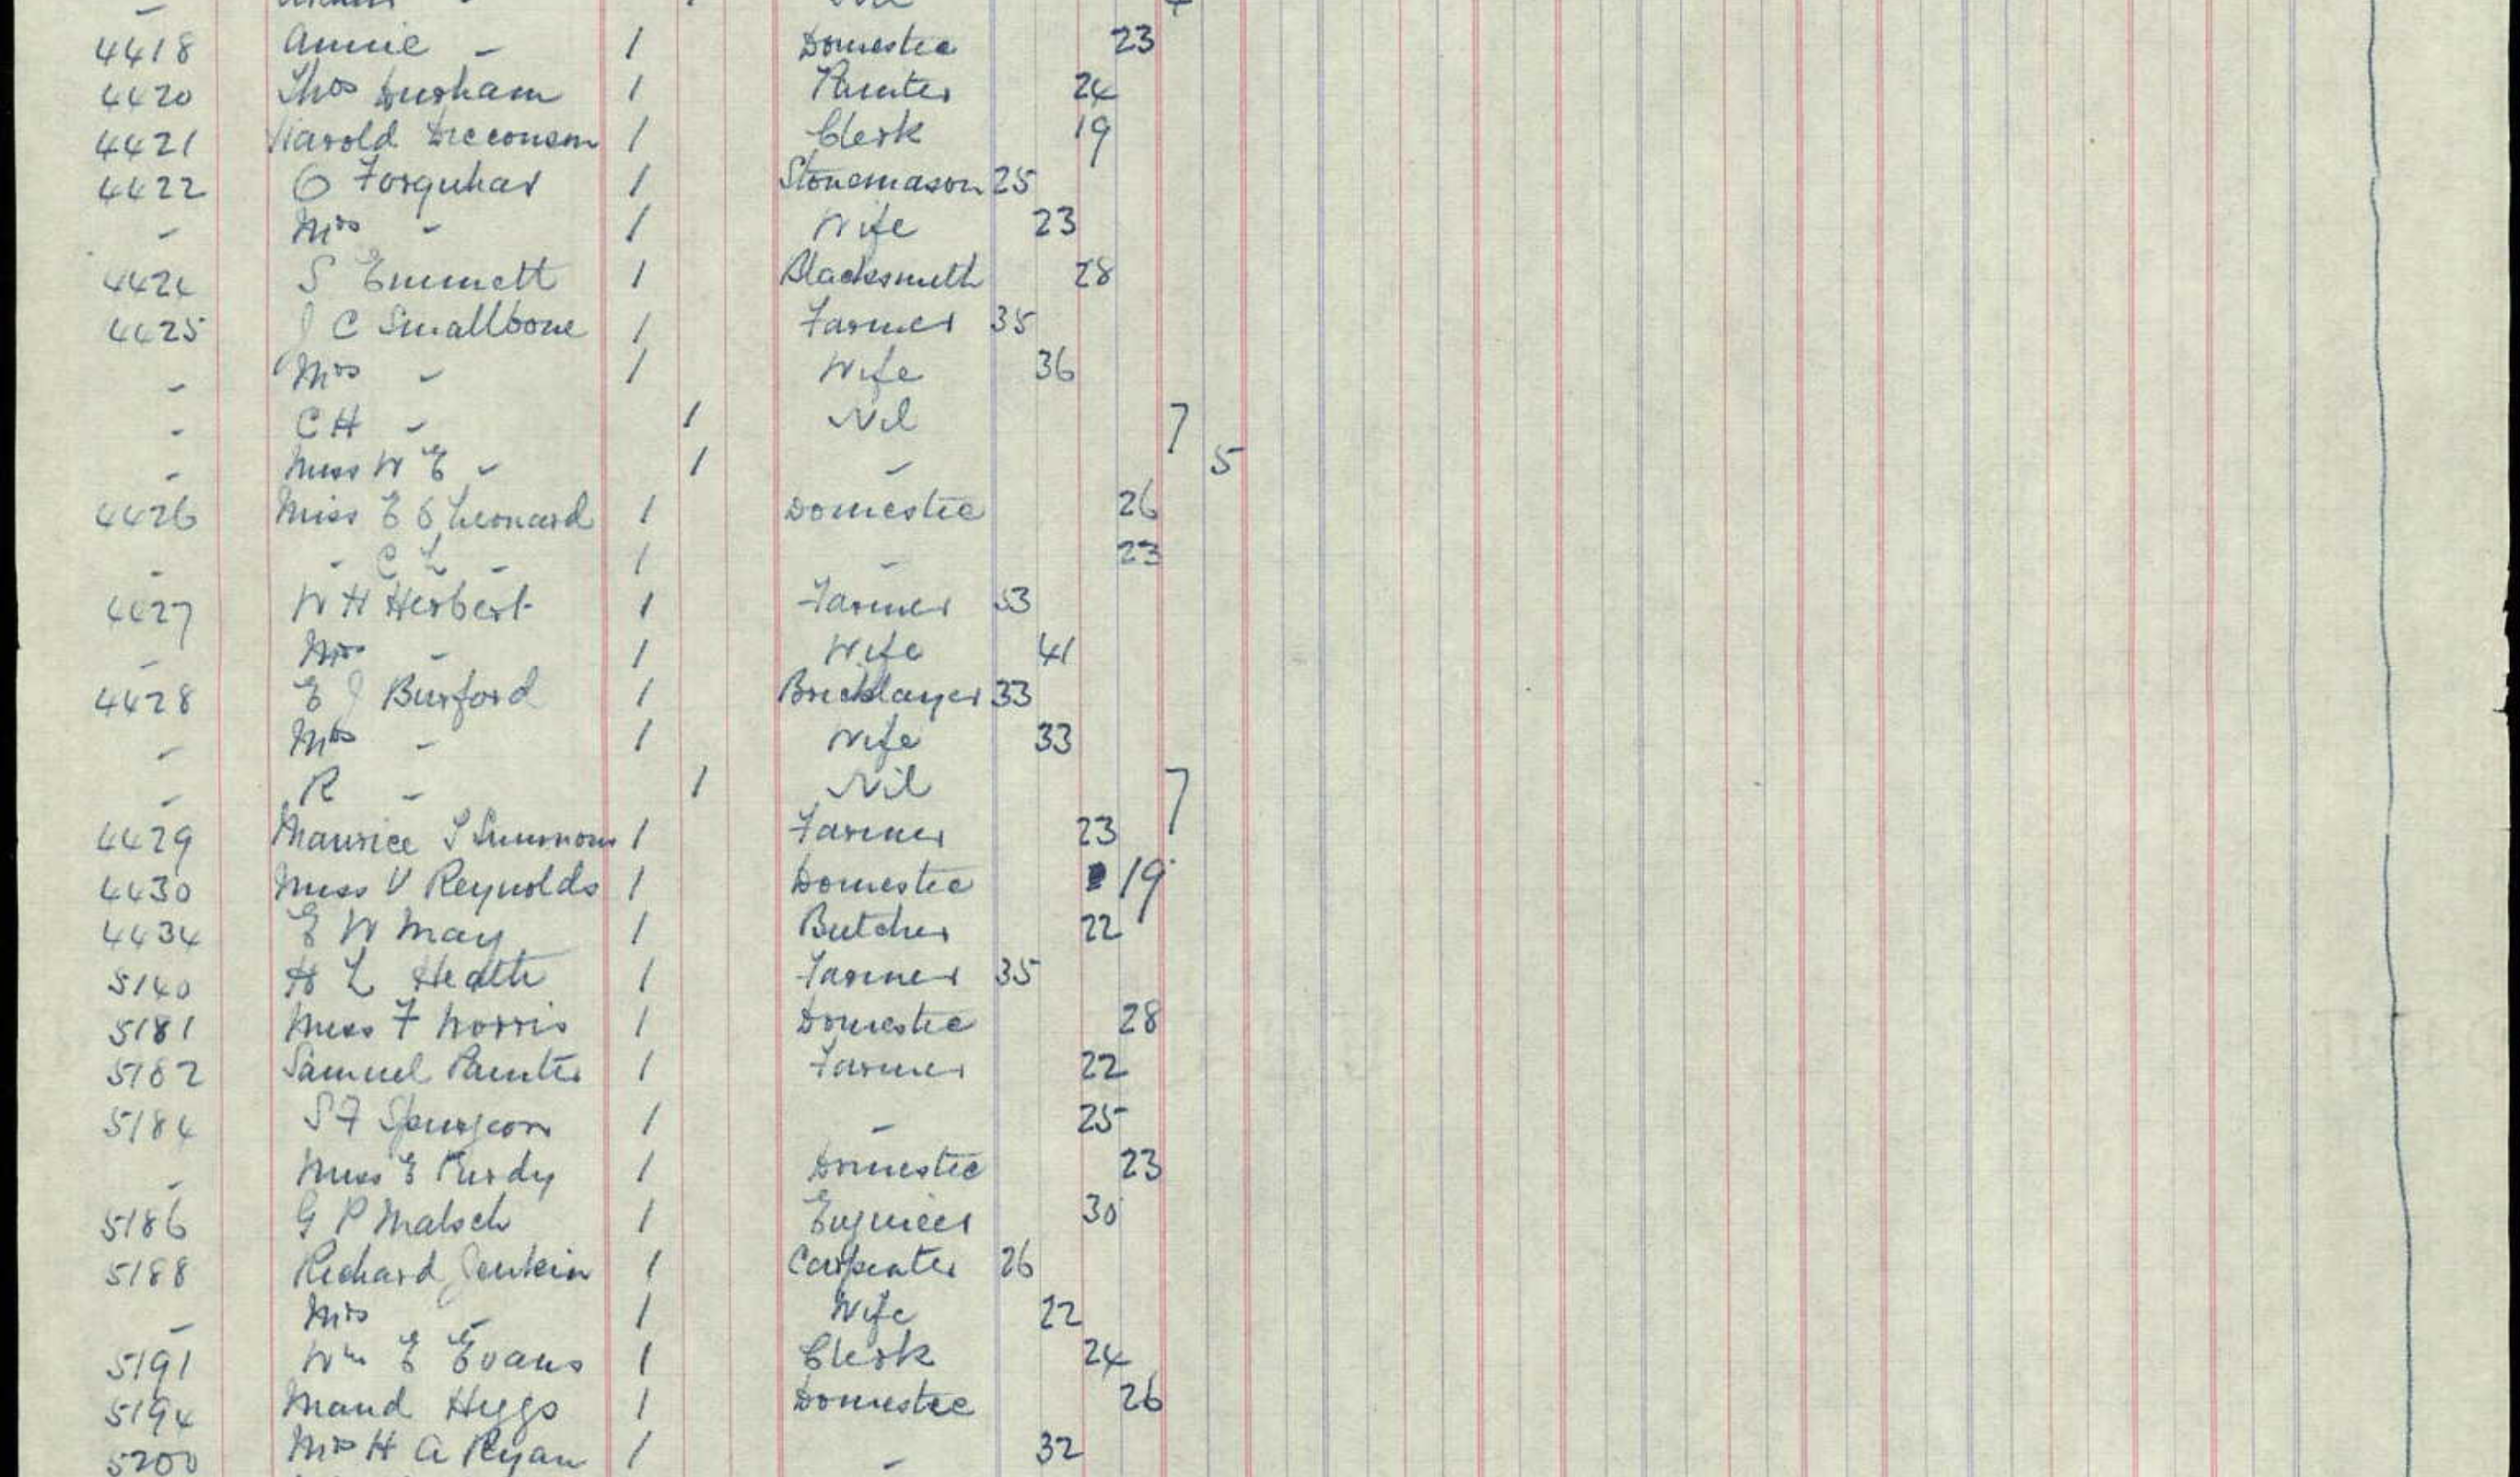 4418 Annie - 1 Domestic 23
4420 Thos Durham 1 Painter 24
4421 Harold 1 Clerk 19
4422 O Forquhar 1 Stonemason 25
- Mrs - 1 Wife 23
4424 S Emmett 1 Blacksmith 28
4425 J C Smallbone 1 Farmer 35
- Mrs - 1 Wife 36
- C H - 1 Nil 7
- Miss W E - 1 - 5
4426 Miss E E Leonard 1 Domestic 26
- - C L - 1 - 23
4427 W H Herbert 1 Farmer 53
- Mrs - 1 Wife 41
4428 E J Burford 1 Bricklayer 33
- Mrs - 1 Wife 33
- R - 1 Nil 7
4429 Maurice S Simmons 1 Farmer 23
4430 Miss V Reynolds 1 Domestic 19
4434 E W May 1 Butcher 22
5140 H L Heath 1 Farmer 35
5181 Miss F Norris 1 Domestic 28
5182 Samuel Painter 1 Farmer 22
5184 S F Spurgeon 1 - 25
- Miss E Purdy 1 Domestic 23
5186 G P Malsch 1 Engineer 30
5188 Richard Jenkin 1 Carpenter 26
- Mrs - 1 Wife 22
5191 Wm E Evans 1 Clerk 24
5194 Maud Higgs 1 Domestic 26
5200 Mrs H A Ryan 1 - 32